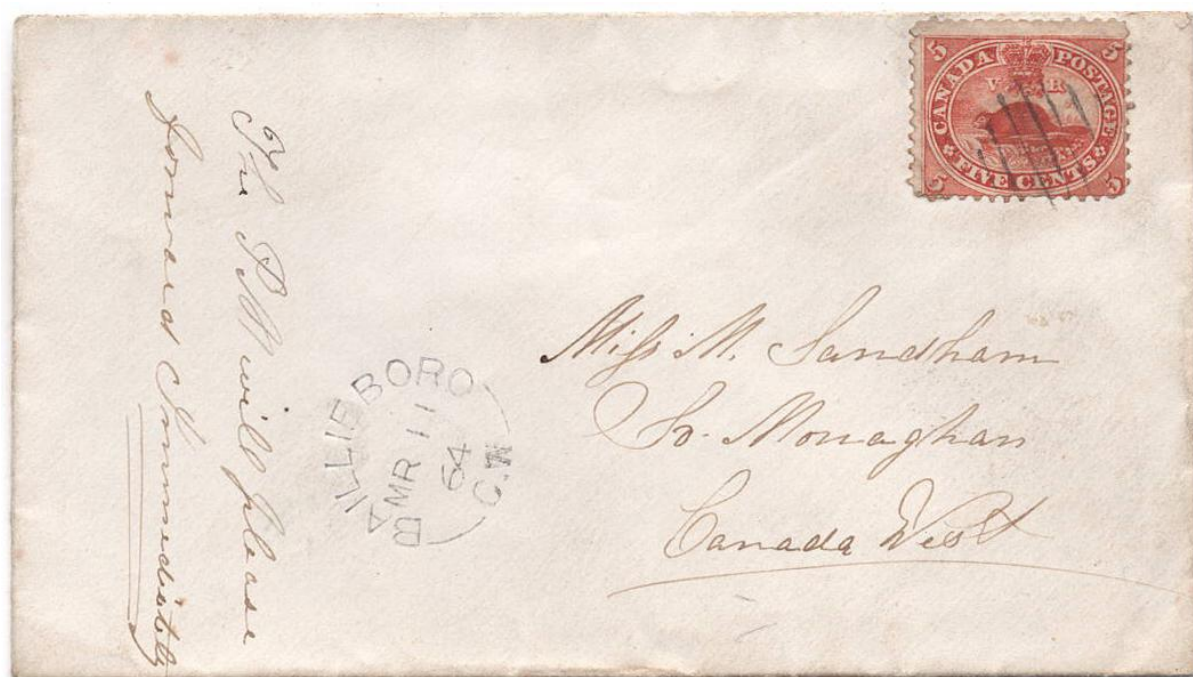 5 5
CANADA POSTAGE
V R
FIVE CENTS
5 5
The P M will please
forward Immediately
BAILLIEBORO
MR 11
64
C.W
Miss M. Sandham
So. Monaghan
Canada West